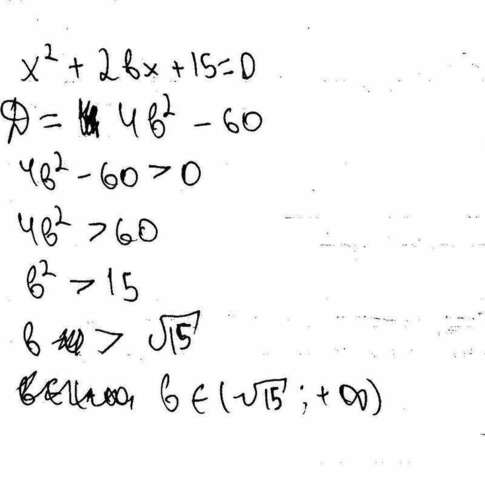 x² + 2bx + 15 = 0
D = 4b² - 60
4b² - 60 > 0
4b² > 60
b² > 15
b > √15
b ∈ (√15 ; +∞)